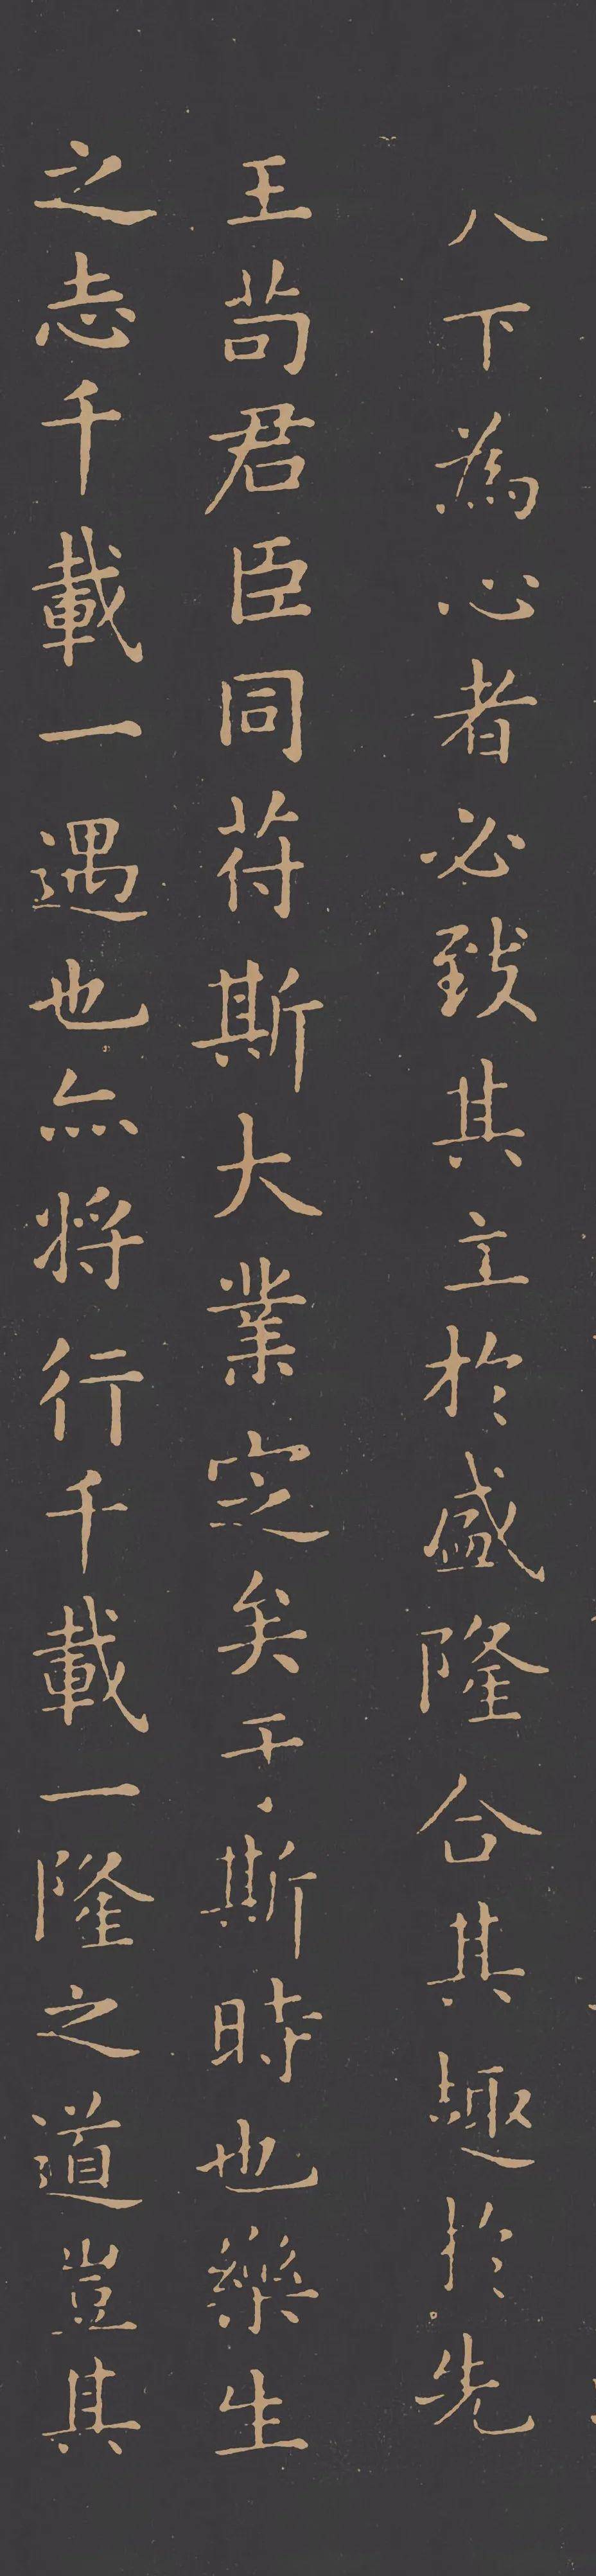 天下為心者必致其主於盛隆合其趣於先
王苟君臣同苻斯大業定矣于斯時也樂生
之志千載一遇也亦將行千載一隆之道豈其